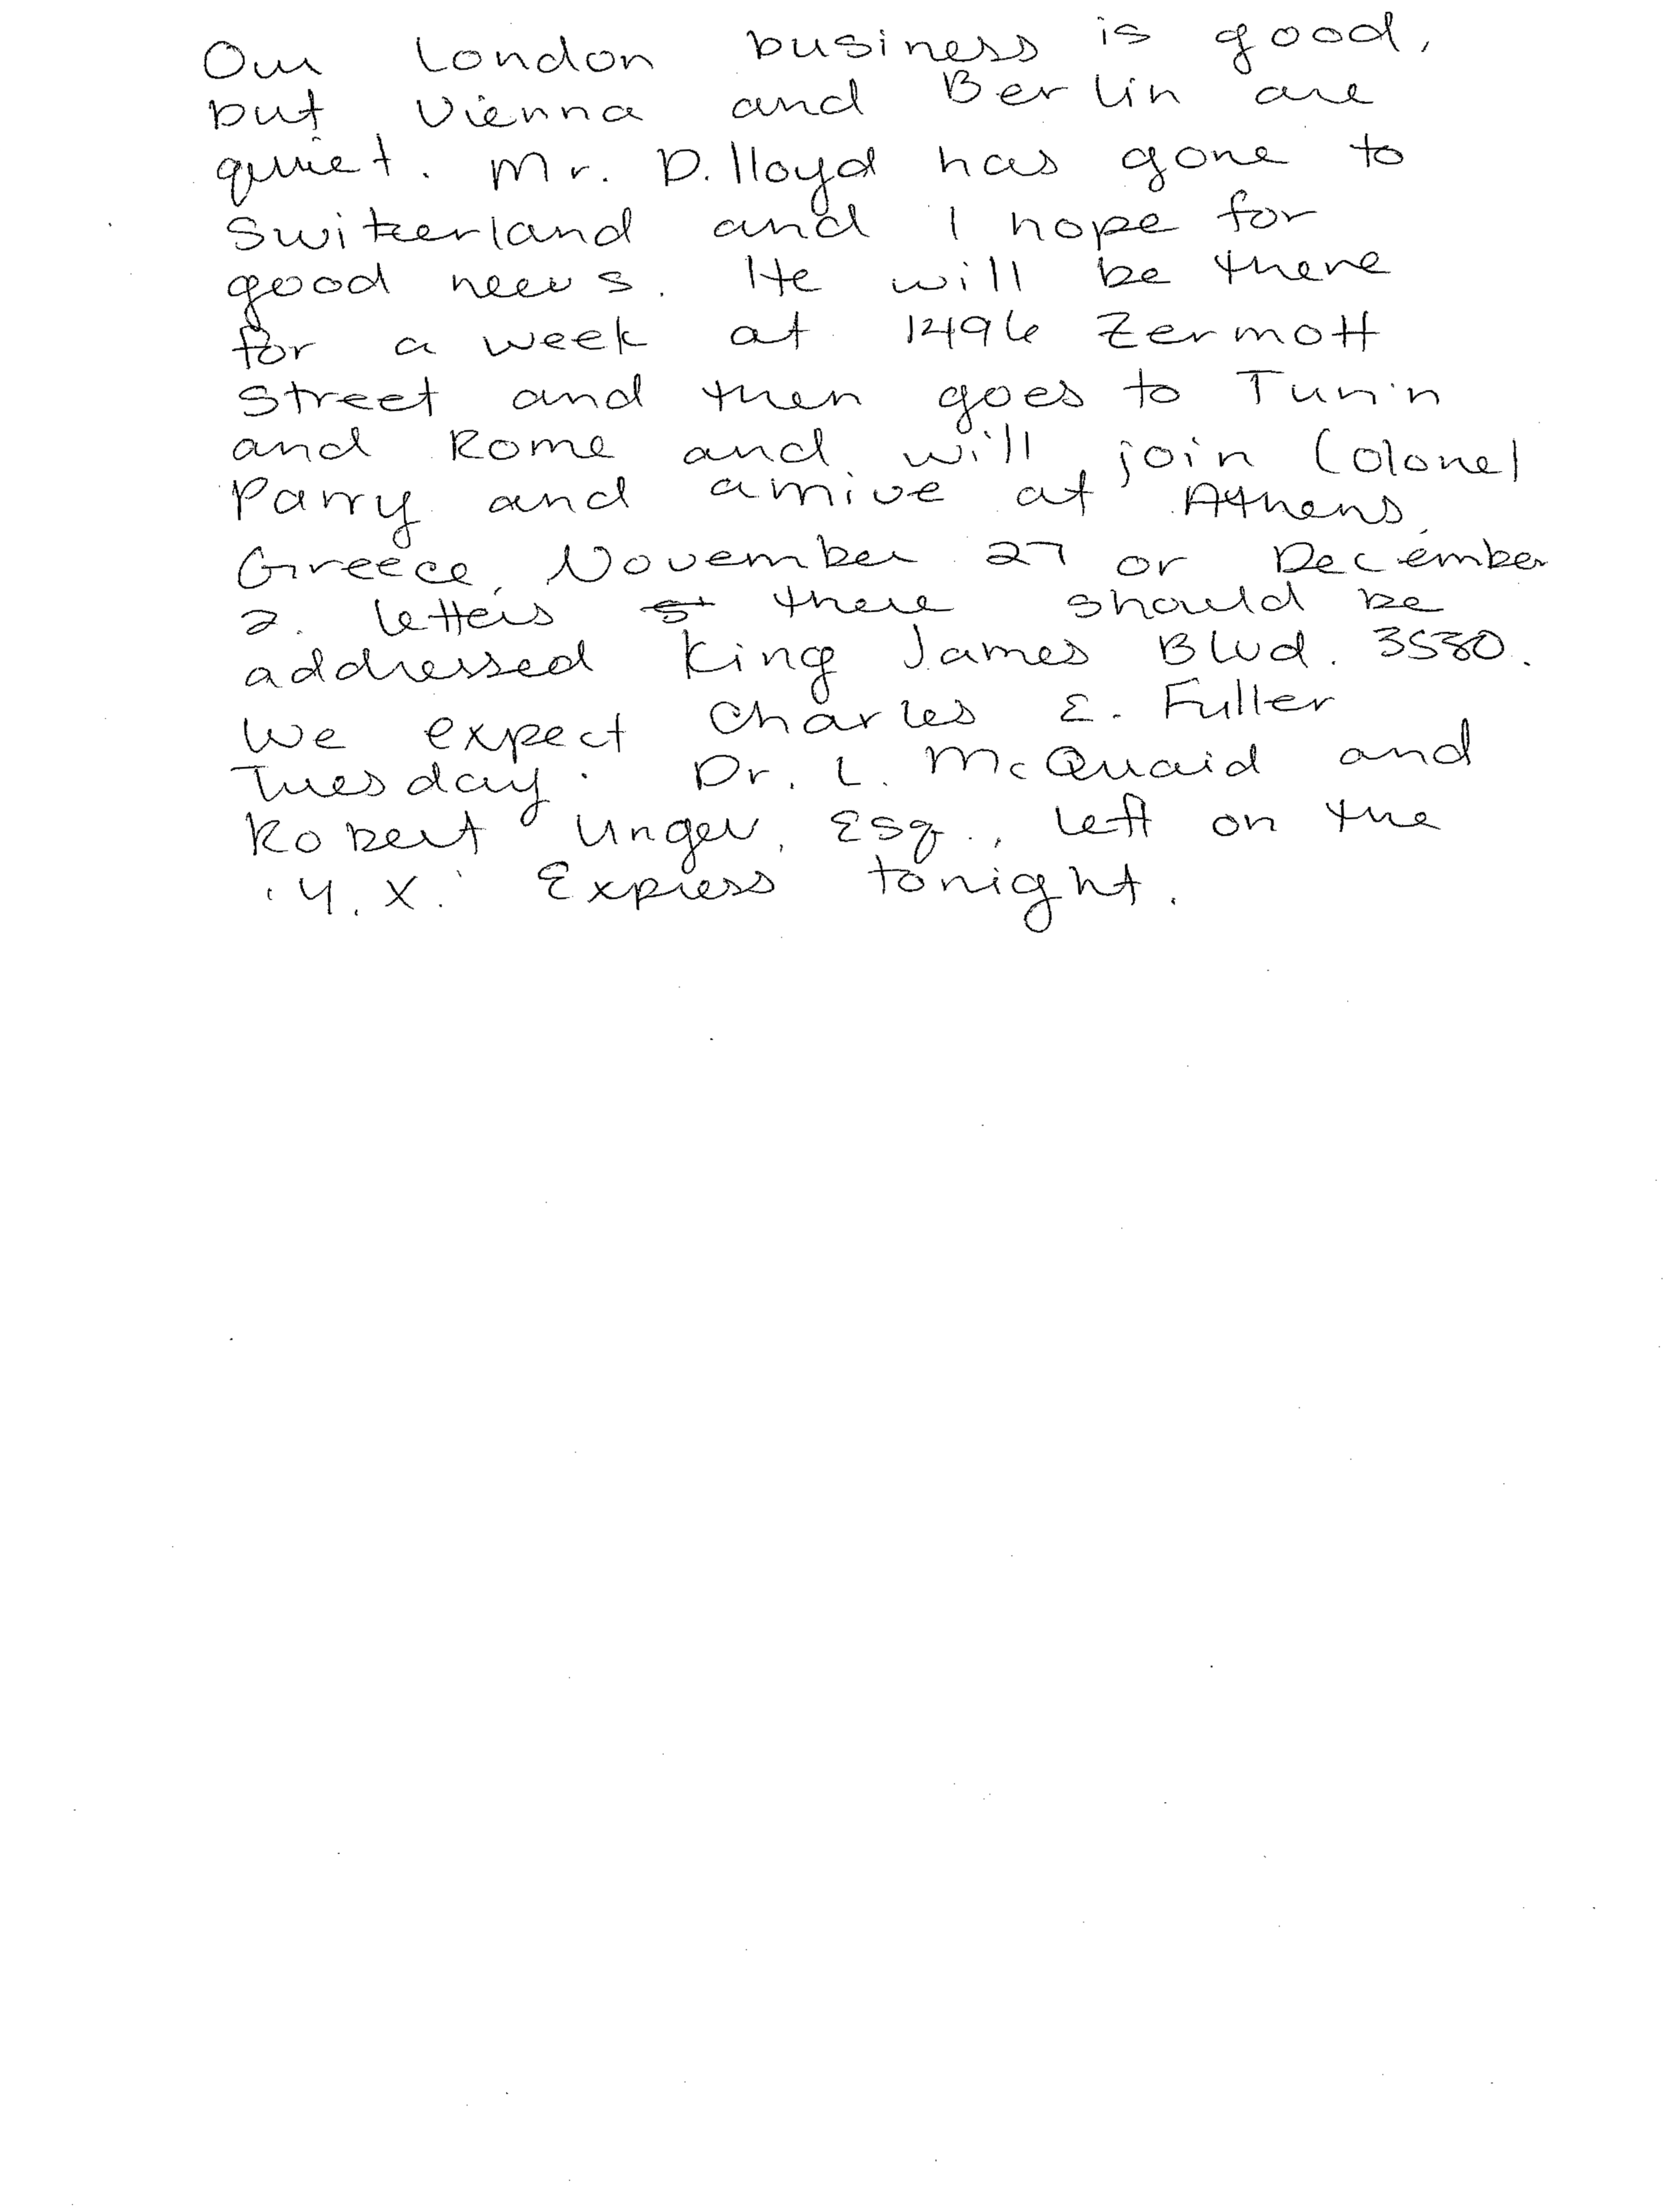 Our London business is good,
but Vienna and Berlin are
quiet. Mr. D. lloyd has gone to
Switzerland and I hope for
good news. He will be there
for a week at 1496 Zermott
Street and then goes to Turin
and Rome and will join Colonel
Parry and arrive at Athens,
Greece, November 27 or December
2. Letters there should be
addressed King James Blvd. 3580.
We expect Charles E. Fuller
Tuesday. Dr. L. McQuaid and
Robert Unger, Esq., left on the
'Y.X.' Express tonight.